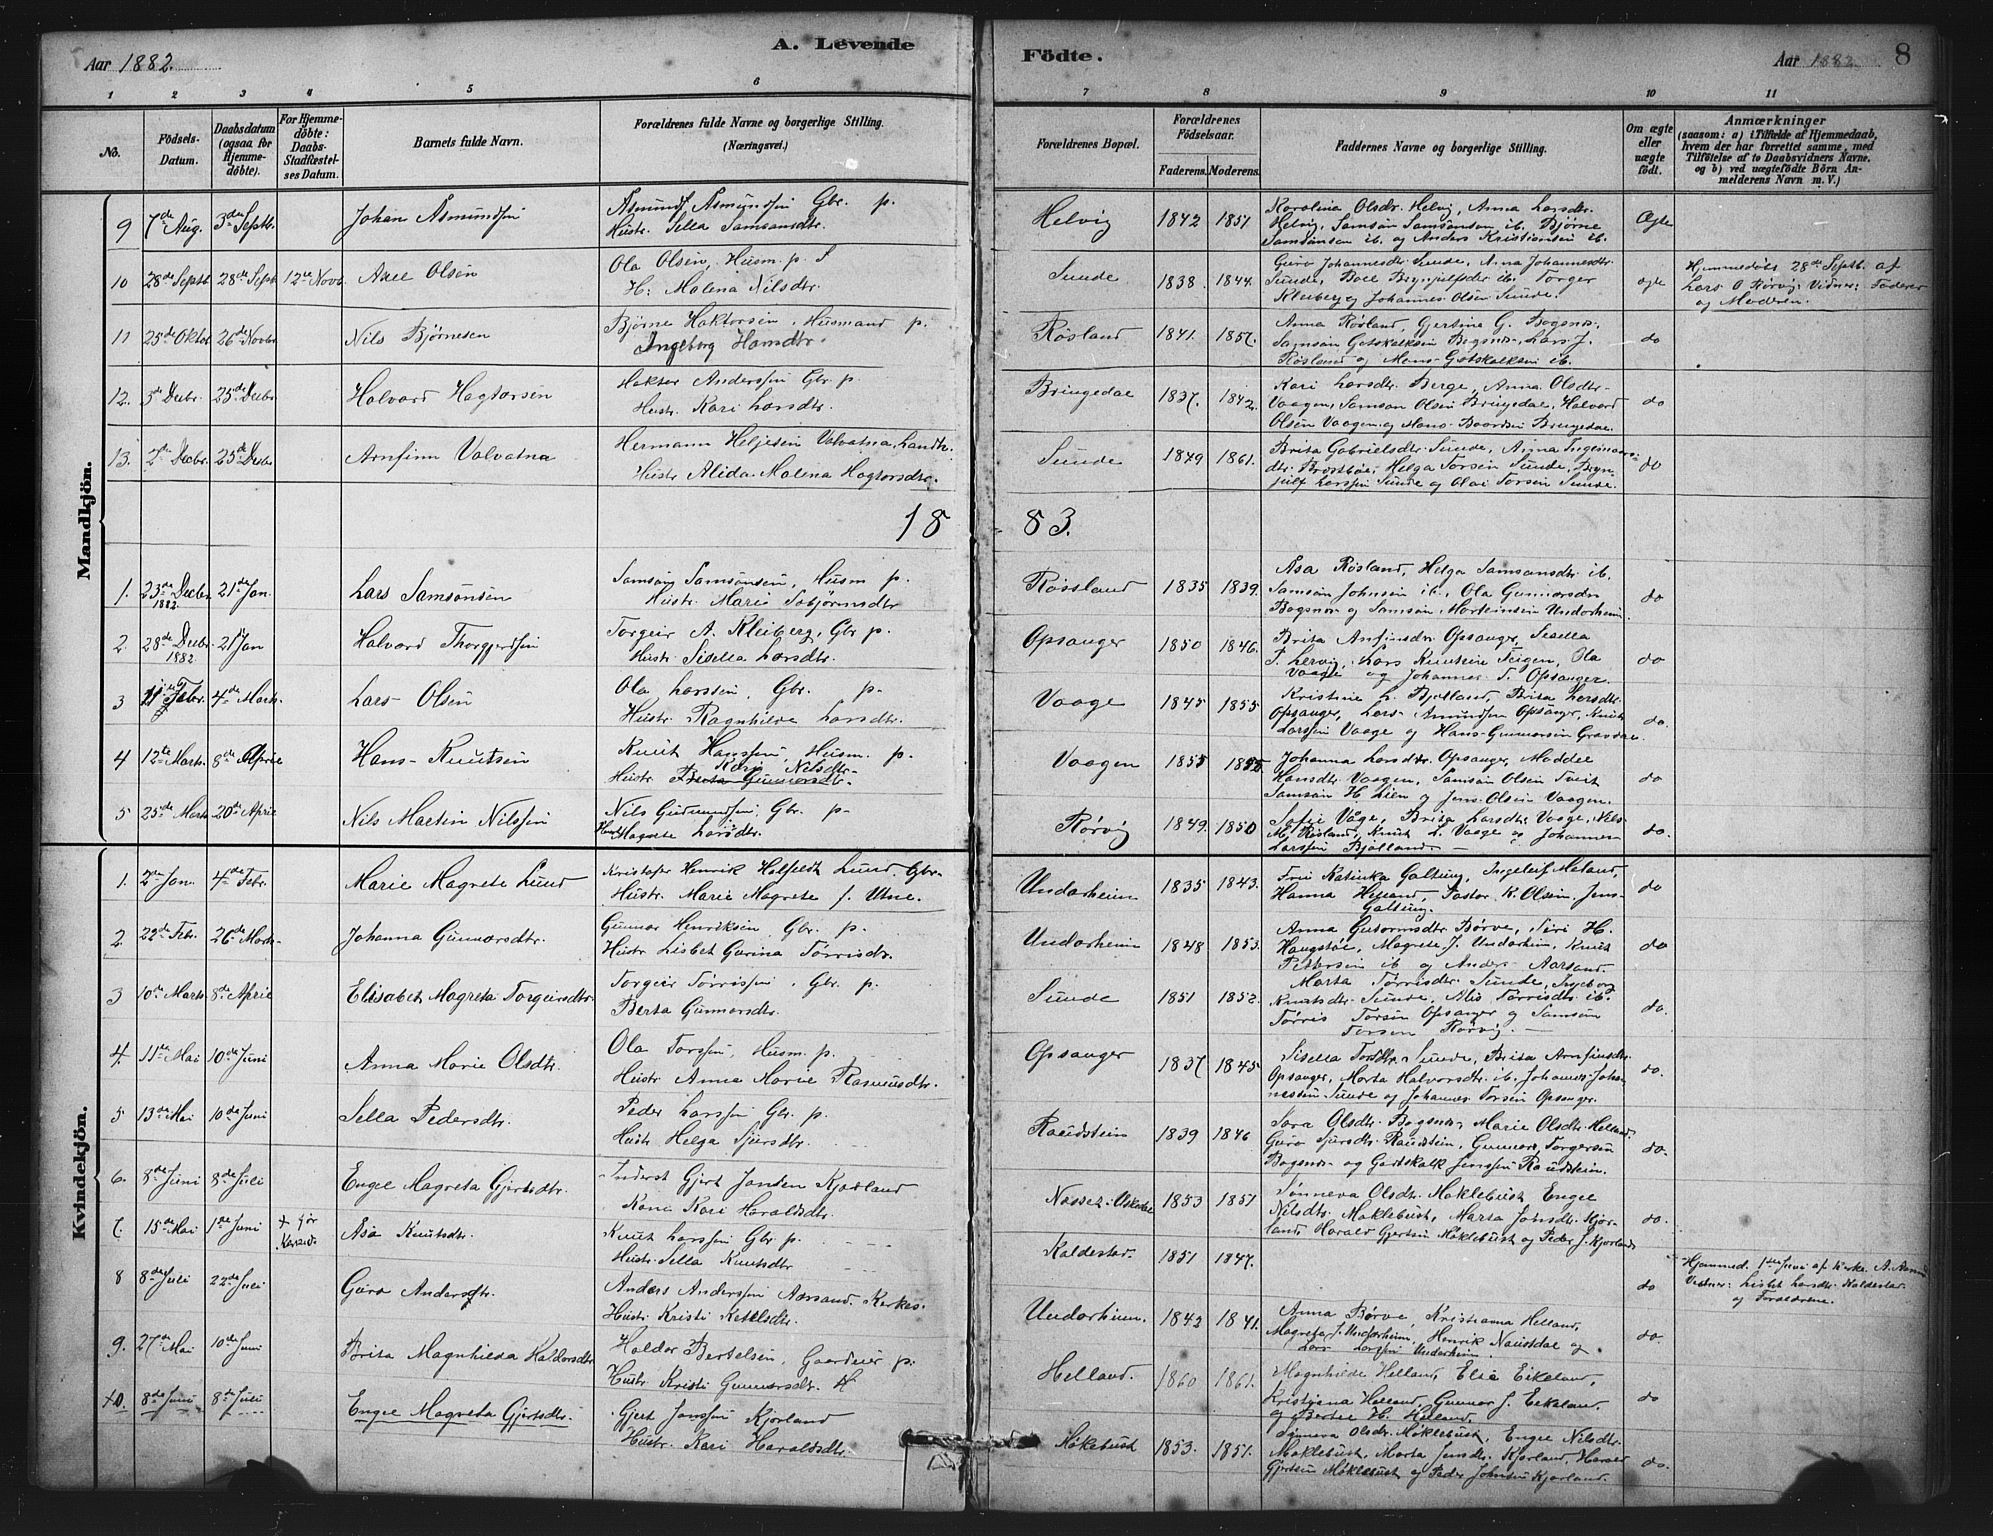 A. Levende
Aar 1882.
Födte.
Aar 1882. 8
1 2 3 4 5 6 7 8 9 10 11
No.
Födsels-
Datum.
Daabsdatum
(ogsaa for
Hjemme-
döbte).
For Hjemme-
döbte:
Daabs-
Stadfæstel-
ses Datum.
Barnets fulde Navn.
Forældrenes fulde Navne og borgerlige Stilling.
(Næringsvei.)
Forældrenes Bopæl.
Forældrenes
Födselsaar.
Faderens. Moderens.
Faddernes Navne og borgerlige Stilling.
Om ægte
eller
uægte
födt.
Anmærkninger
(saasom: a) i Tilfælde af Hjemmedaab,
hvem der har forrettet samme, med
Tilföielse af to Daabsvidners Navne.
og b) ved uægtefödte Börn An-
melderens Navn m. V.)
Mandkjön.
9 7de Aug. 3de Septb. Johan Asmundsen
Asmund Asmundsen Gbr. p.
Hustr. Sella Samsonsdtr.
Helvig 1842 1851
Karolina Olsdr. Helvig, Anna Larsdtr.
Helvig, Samson Samsonsen ib. Bjørne
Samsonsen ib. og Anders Kristiansen ib.
Ægte
10 28de Septb. 28de Septb. 12te Novb. Axel Olsen
Ola Olsen, Husm. p. S
H: Malena Nilsdtr.
Sunde 1838. 1844.
Guro Johannesdtr. Sunde, Anna Johannesdtr.
Sunde, Boel Brynjulfsdtr ib. Torger
Kleiberg og Johannes Olsen Sunde.
ægte
Hjemmedøbt 28de Septb. af
Lars O Rørvig. Vidner: Faderen
og Moderen.
11 25de Oktob 26de Novbr Nils Bjørnesen
Bjørne Haktorsen, Husmand p.
Ingeborg Hansdtr.
Røsland 1841. 1857.
Anna Røsland, Gjertine G. Bogsnes,
Samson Gotskalksen Bogsnes, Lars J.
Røsland og Mons Gotskalksen ib.
do
12. 5te Decbr. 25de Decbr Halvard Hagtorsen
Haktor Anderssen Gbr. p.
Hustr. Kari Larsdtr.
Bringedal 1837. 1842.
Kari Larsdtr. Berge, Anna Olsdtr.
Vaagen, Samson Olsen Bringedal, Halvard
Olsen Vaagen og Hans Baardsen Bringedal.
do
13. 2de Decbr. 25de Decbr Arnfinn Valvatna
Hermann Heljesen Valvatna, Landh.
Hustr Alida Malena Hagtorsdtr.
Sunde 1849 1861.
Brita Gabrielsdtr. Sunde, Anna Ingemoers-
dtr. Helga Torsen Sunde, Bryn-
julf Larssen Sunde og Olai Torsen Sunde.
do
18 83.
1. 23de Decbr. 1882. 21de Jan. Lars Samsonsen
Samson Samsonsen, Husm p.
Hustr. Mari
Røssland 1835 1839.
Asa Røsland, Helga Samsonsdtr. ib.
Samson Johnsen ib., Ola Gunnarsdr
Bogsnes og Samson Morteinsen Undarheim
do
2. 28de Decbr. 1882. 21 Jan Halvard Thorgjerdsen
Torgeir A. Kleiberg, Gbr p.
Hustr. Sisella Larsdtr.
Opsanger 1850 1846.
Brita Anfinsdtr Opsanger, Sisella
T. Lervig, Lars Knutsen Teigen, Ola
Vaage og Johannes T. Opsanger.
do
3 11 Febr. 4de Marts. Lars Olsen
Ola Larssen, Gbr. p.
Hustr. Ragnhilde Larsdtr.
Vaage 1845 1855.
Kristine L. Bjelland, Brita Larsdtr.
Opsanger, Lars Amundsen Opsanger, Knut
Larssen Vaage og Hans Gunnarsen Gravdal
do.
4 12te Marts. 8de Aprie Hans Knutsen
Knut Hanssen, Husm. p.
Hustr. Kari Nilsdtr.
Vaagen 1855 1855
Johanna Larsdtr. Opsanger, Maddel
Hansdtr. Vaagen, Samson Olsen Tveit
Samson H. Lien og Jens Olsen Vaagen.
do
5 25de Marts 20de Aprie Nils Martin Nilssen
Nils Gudmundsen, Gbr. p.
Hust. Magrete Larsdtr.
Rørvig 1849. 1850
Sofie Våge, Brita Larsdtr. Vaage, Nils
M. Røsland, Knut L. Vaage og Johannes
Larssen Bjelland
do.
Kvindekjön.
1. 2de Jan. 4de Febr. Marie Magrete Lund
Kristofer Henrik Holfeldt Lund, Gbr.
Hustr. Marie Magrete f. Utne.
Undarheim 1835 1843.
Frue Katinka Galtung, Ingeleif Meland,
Hanna Helland, Pastor K. Olsen, Jens
Galtung.
do
2. 22de Febr. 26de Marts Johanna Gunnarsdtr.
Gunnar Henriksen, Gbr. p.
Hustr. Lisbet Gurina Tørrisdtr.
Undarheim 1848 1853.
Anna Gutormsdtr Børve, Siri H.
Haugstøe, Magrete J. Undarheim, Knut
Pettersen ib og Anders Aarsand.
do
3 10de Marts 8de Aprie Elisabet Magreta Torgeirsdtr
Torgeir Tørrissen, Gbr. p.
Berta Gunnarsdtr.
Sunde 1851 1852.
Marta Tørrisdtr. Sunde, Ingeborg
Knutsdtr. Sunde, Alis Tørrisdtr. ib.
Tørris Torsen Opsanger og Samson
Torsen Rørvig.
do.
4. 11te Mai 10de Juni Anna Marie Olsdtr.
Ola Torssen, Husm. p.
Hustr Anna Marie Rasmusdtr.
Opsanger 1837 1845
Sisella Torsdtr. Sunde, Brita Arnfinsdtr.
Opsanger, Marta Halvorsdtr. ib. Johannes Johan
nessen Sunde og Johannes Torsen Opsanger.
do.
5 13de Mai 10de Juni Sella Pedersdtr.
Peder Larssen Gbr. p.
Hustr. Helga Sjursdtr.
Raudstein 1839 1846
Sara Olsdtr. Bogsnes, Marie Olsdtr. Helland.
Guro Sjursdtr. Raudstein, Gunnar Torgersen
Bogsnes og Gotskalk Jenssen Raudstein.
do.
6. 8de Juni 8de Juli Engel Magreta Gjertsdtr.
Inderst Gjert Jansen Kjørland
Kone Kari Haraldsdtr.
1853 1851
Sønneva Olsdtr. Møklebust, Engel
Nilsdtr. Møklebust, Marta Jonsdtr. Kjør-
land, Harald Gjertsen Møklebust og Peder J. Kjørland
do.
7. 15de Mai 1ste Juni Asa Knutsdtr.
Knut Larssen Gbr p.
Hustr. Sella Knutsdtr.
Kaldestad. 1851 1847.
do
Hjemmed. 1ste Juni af Kirke. A. Aarsand
Vidner: Lisbet Larsdtr. Kaldestad
og Forældrene.
8 8de Juli 22de Juli Guro Andersdtr.
Anders Anderssen Aarsand. Kirkes.
Hustr. Kristi Ketelsdtr.
Undarheim. 1842 1841.
Anna Børve, Kristianna Helland,
Magreta J. Undarheim, Henrik Naustdal og
Lars Larssen Undarheim
do
9. 27de Mai 10de Juni Brita Magnhilda Haldorsdtr
Haldor Bertelsen, Gaardeier p.
Hustr. Kristi Gunnarsdtr. H
Helland. 1860 1861.
Magnhilde Helland, Elie Eikeland,
Kristiana Helland, Gunnar J. Eikeland,
og Bertel H. Helland.
do
10. 8de Juni 8de Juli Engel Magreta Gjertsdtr.
Gjert Janssen Kjørland
Hustr. Kari Haraldsdtr.
Møklebust 1853. 1851.
Sønneva Olsdr. Møklebust, Engel Nilsdtr.
Møklebust, Marta Jensdtr. Kjørland, Harald
Gjertsen Møklebust og Peder Johnsen Kjørland.
do.